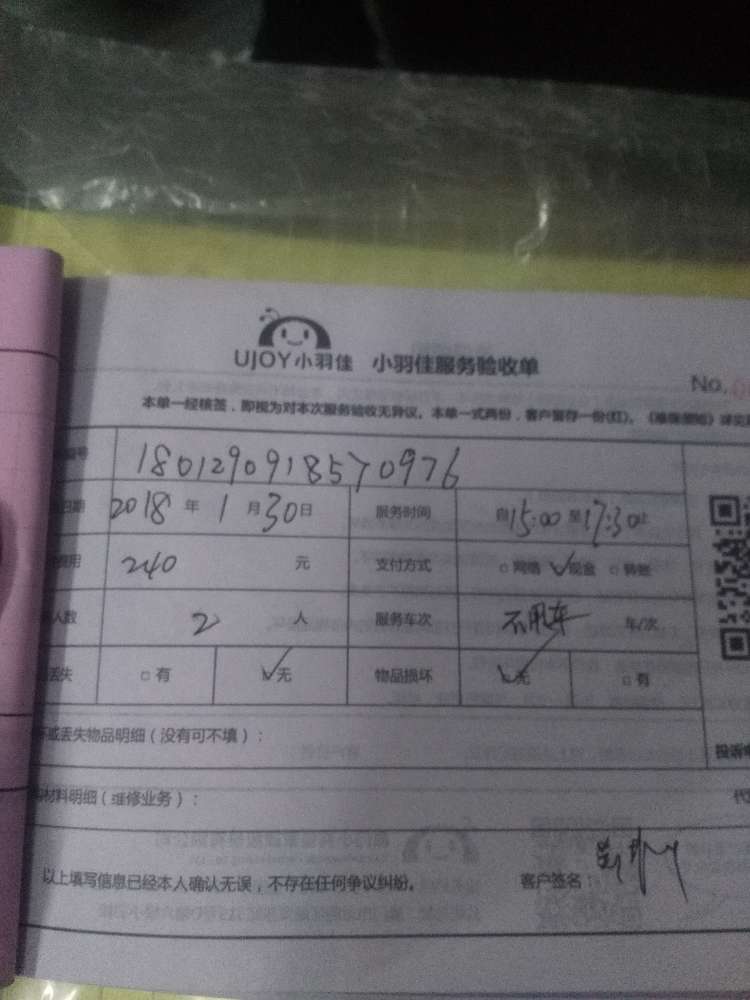 UJOY小羽佳 小羽佳服务验收单
No.
本单一经核签，即视为对本次服务验收无异议。本单一式两份，客户留存一份(红)。
号 1801290918570976
日期 2018 年 1 月 30 日 服务时间 自 15:00 至 17:30 止
费用 240 元 支付方式 □ 网络 ✓ 现金 □ 转账
人数 2 人 服务车次 不用车 车/次
丢失 □ 有 ✓ 无 物品损坏 ✓ 无 □ 有
或丢失物品明细（没有可不填）：
投诉
材料明细（维修业务）：
以上填写信息已经本人确认无误，不存在任何争议纠纷。 客户签名：